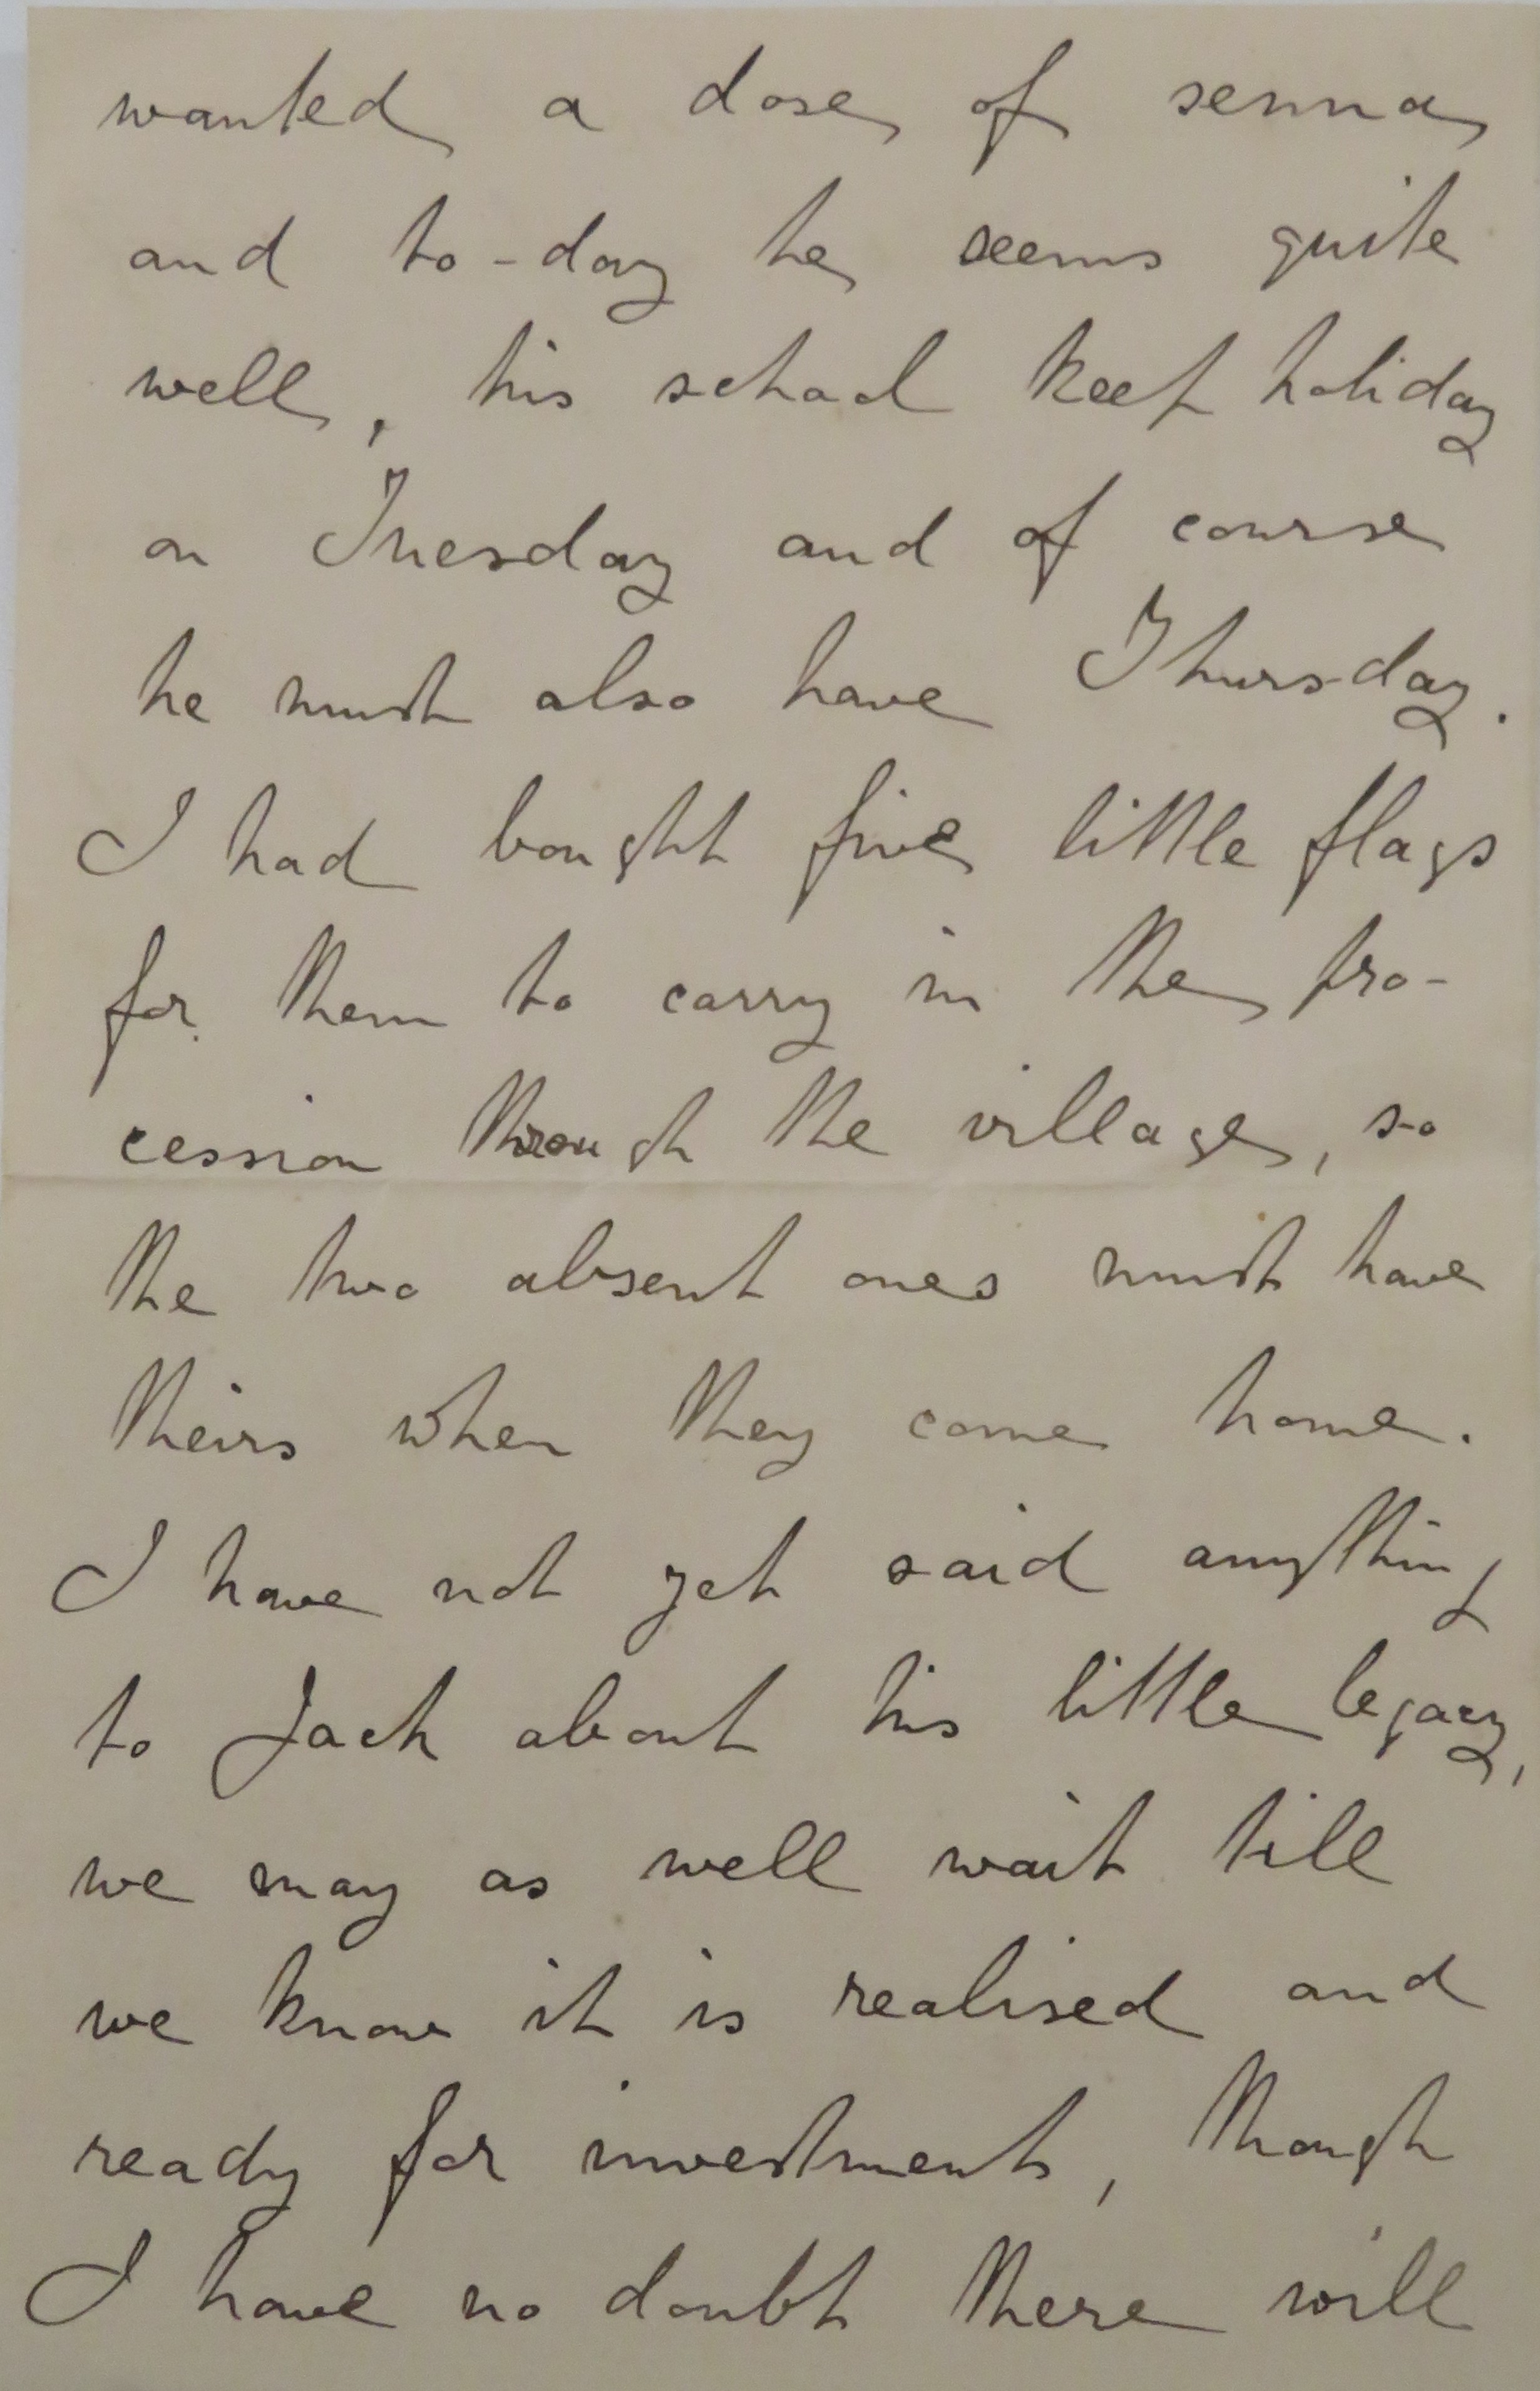 wanted a dose of senna
and to-day he seems quite
well, his school keep holiday
on Tuesday and of course
he must also have Thursday.
I had bought five little flags
for them to carry in the pro-
cession through the village, so
the two absent ones must have
theirs when they come home.
I have not yet said anything
to Jack about his little legacy,
we may as well wait till
we know it is realised and
ready for investment, though
I have no doubt there will